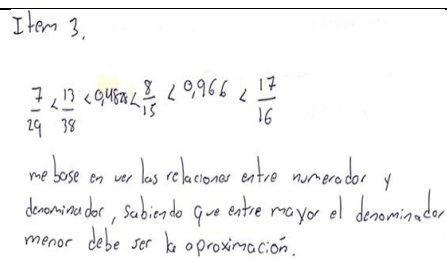 Item 3.
7/29 < 13/38 < 0,4828 < 8/15 < 0,966 < 17/16
me base en ver las relaciones entre numerador y
denominador, sabiendo que entre mayor el denominador
menor debe ser la aproximación.